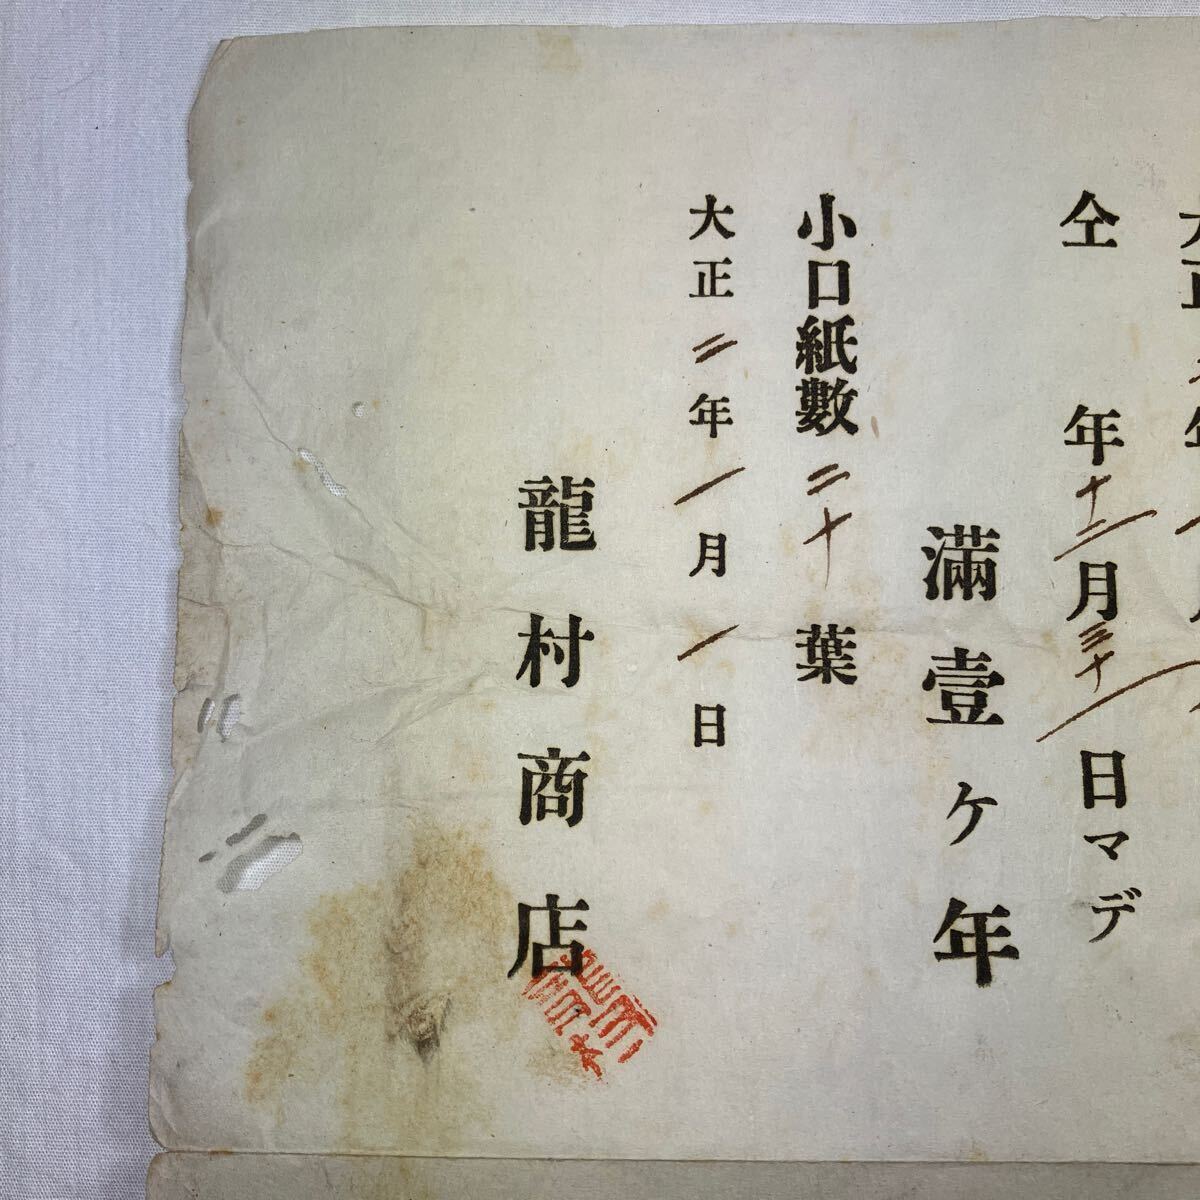 大正
仝 年十二月三十一日マデ
滿壹ケ年
小口紙數二十葉
大正二年一月一日
龍村商店